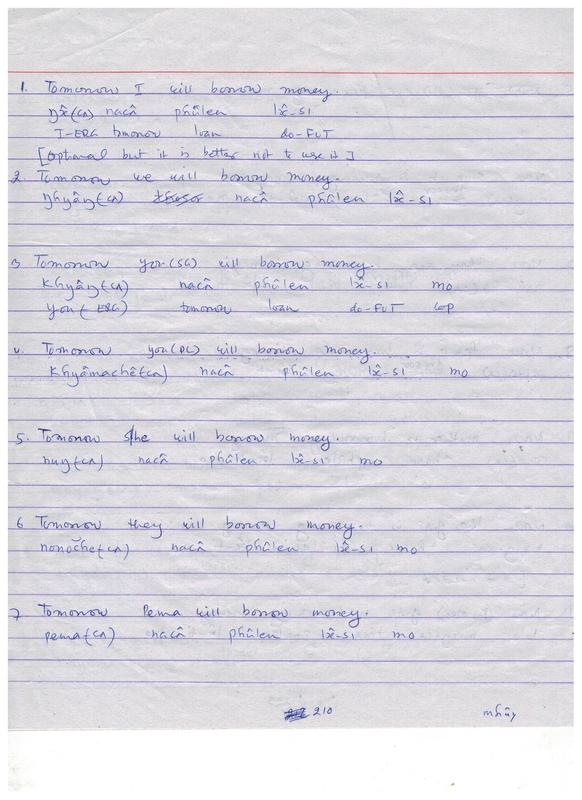 1. Tomorrow I will borrow money.
ŋx̂(CA) nacâ phûlen lx̂-si
I-ERG tomorrow loan do-FUT
[optional but it is better not to use it]
2. Tomorrow we will borrow money.
ŋhyâŋ(CA) nacâ phûlen lx̂-si
3 Tomorrow you(SG) will borrow money.
Khyâŋ(CA) nacâ phûlen lx̂-si mo
you(ERG) tomorrow loan do-FUT COP
4. Tomorrow you(PL) will borrow money.
Khyâmachê(CA) nacâ phûlen lx̂-si mo
5. Tomorrow S/he will borrow money.
huŋ(CA) nacâ phûlen lx̂-si mo
6 Tomorrow they will borrow money.
nacâ phûlen lx̂-si mo
7 Tomorrow Pema will borrow money.
pema(CA) nacâ phûlen lx̂-si mo
210